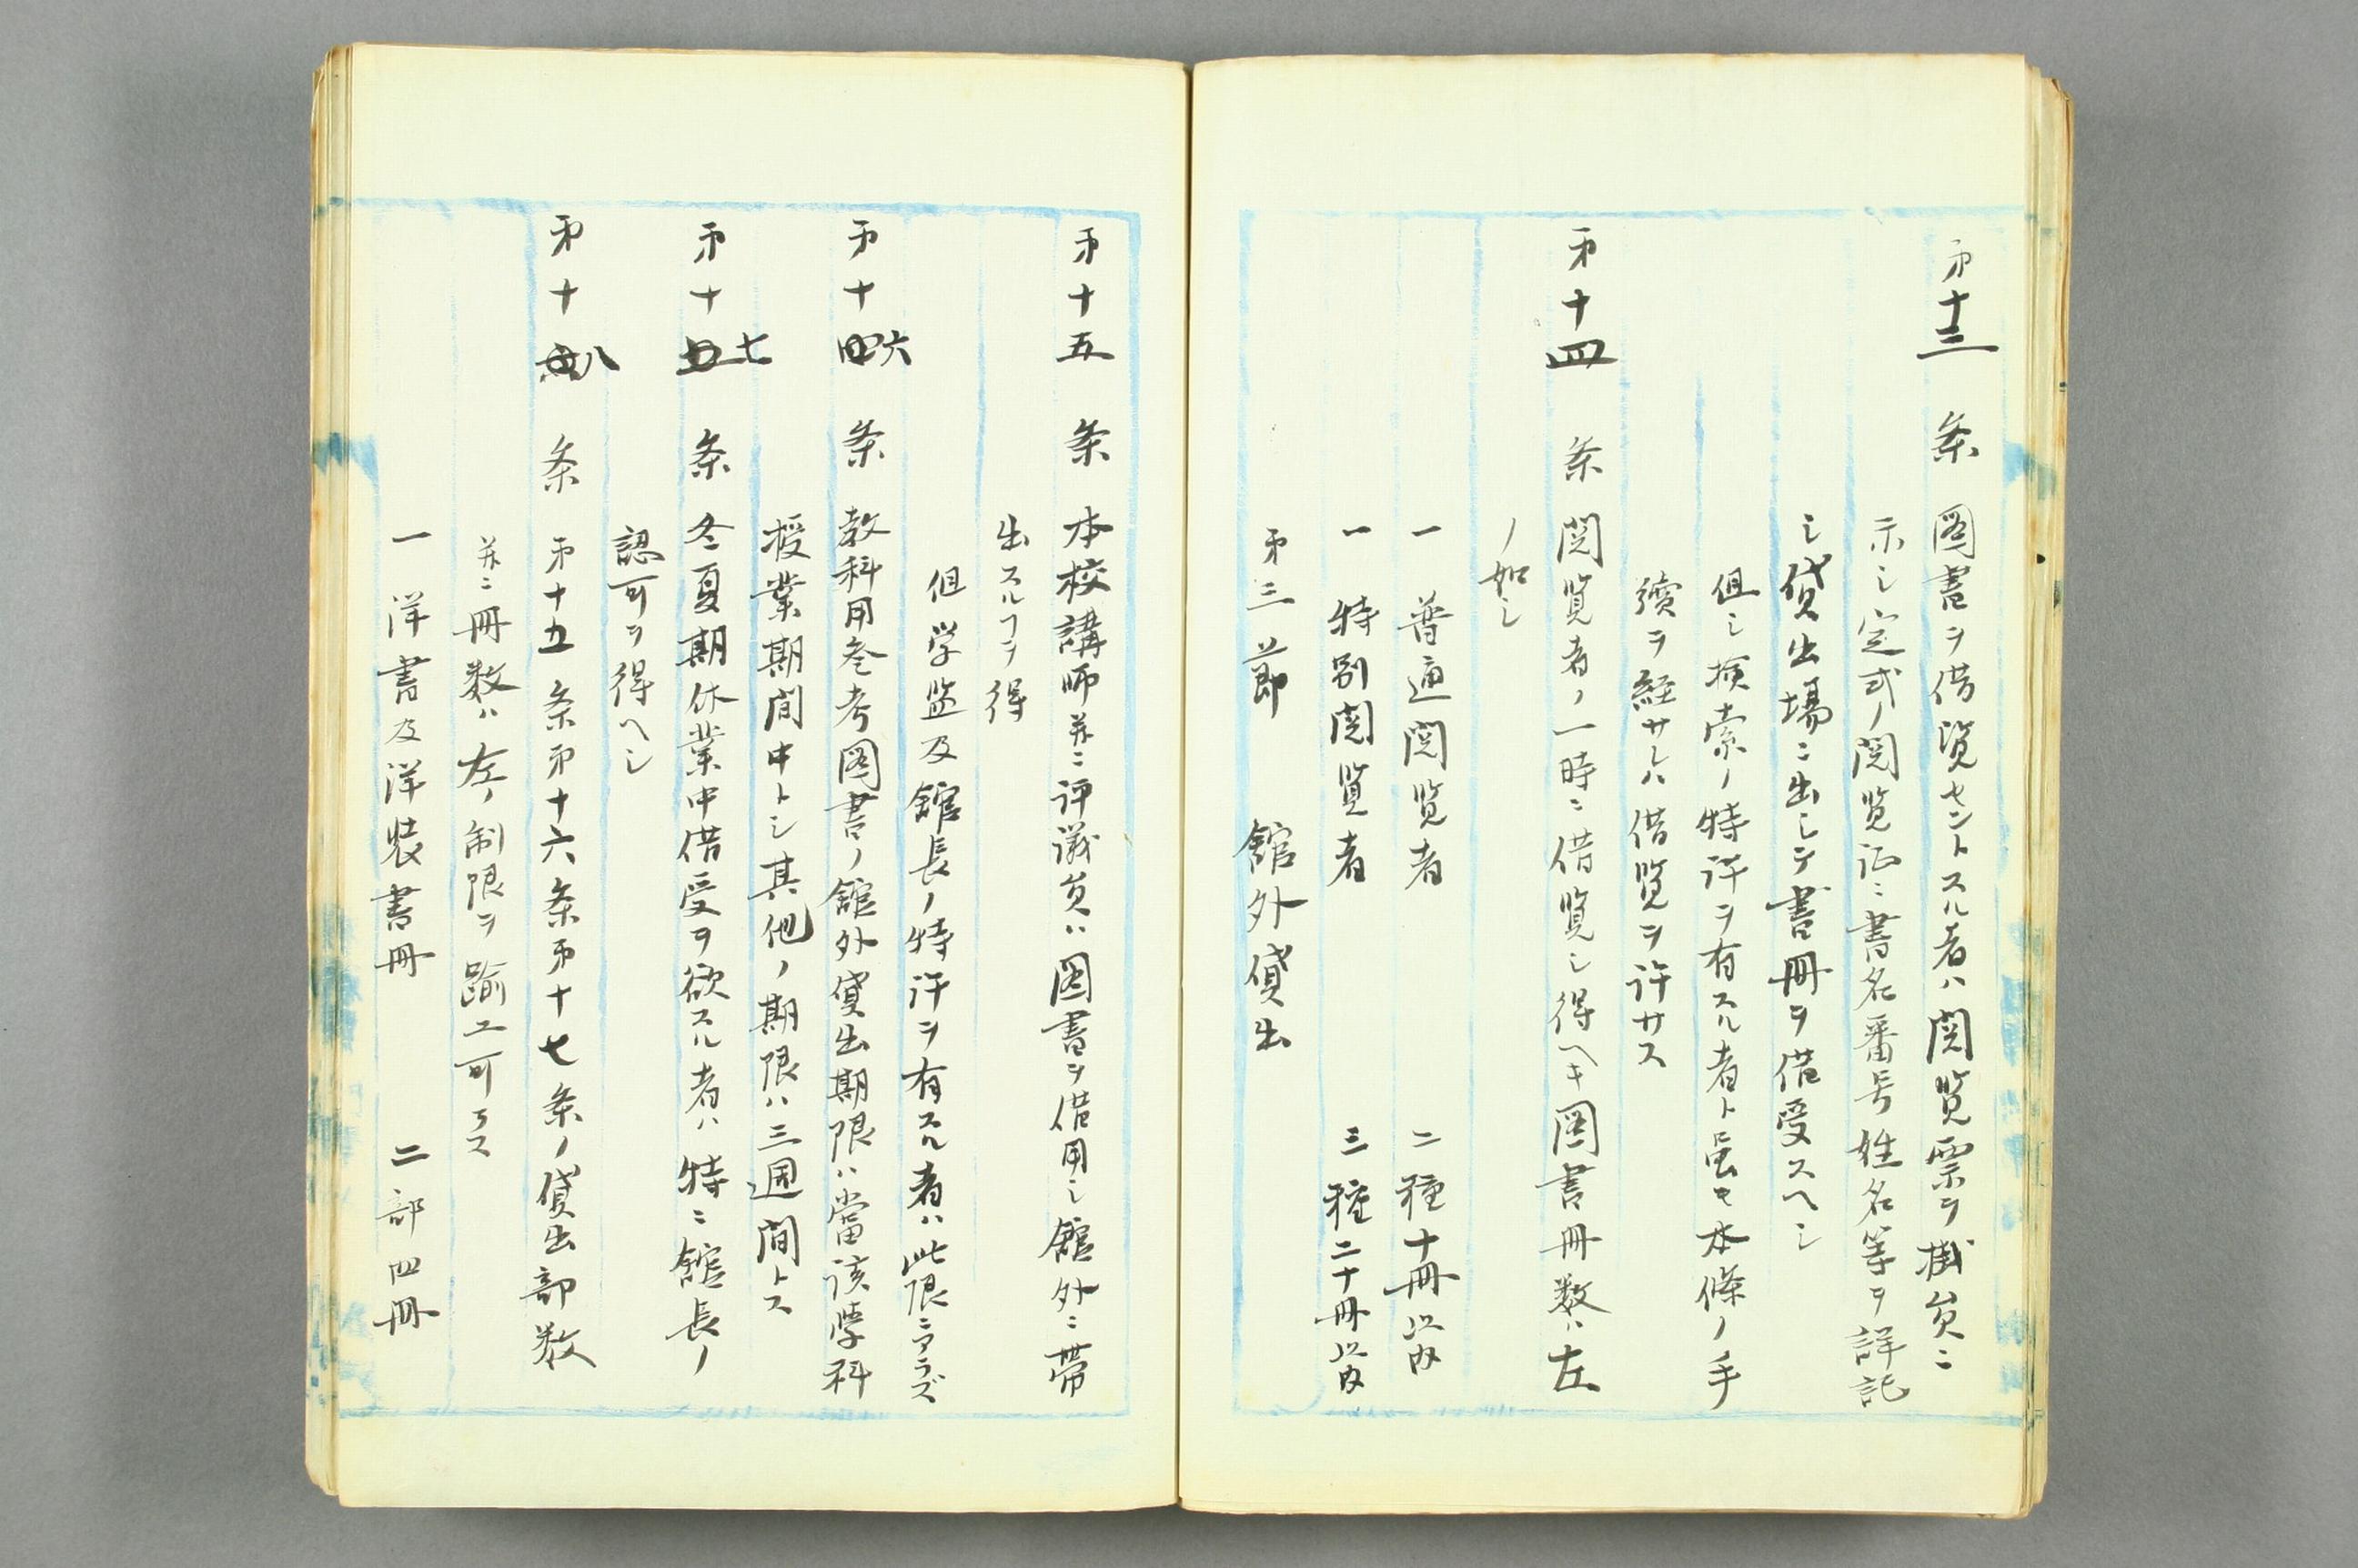 第十三条 図書ヲ借覧セントスル者ハ閲覧票ヲ掛員ニ
示シ定式ノ閲覧証ニ書名番号姓名等ヲ詳記
シ貸出場ニ出シテ書冊ヲ借受スヘシ
但シ検索ノ特許ヲ有スル者ト虽モ本條ノ手
續ヲ経サレハ借覧ヲ許サス
第十四条 閲覧者ノ一時ニ借覧シ得ヘキ図書冊数ハ左
ノ如シ
一 普通閲覧者 二種十冊以内
一 特別閲覧者 三種二十冊以内
第三節 館外貸出
第十五条 本校講師並ニ評議員ハ図書ヲ借用シ館外ニ帯
出スルヿヲ得
但学監及館長ノ特許ヲ有スル者ハ此限ニアラズ
第十六条 教科用参考図書ノ館外貸出期限ハ當該学科
授業期間中トシ其他ノ期限ハ三週間トス
第十七条 冬夏期休業中借受ヲ欲スル者ハ特ニ館長ノ
認可ヲ得ヘシ
第十八条 第十五条第十六条第十七条ノ貸出部数
並ニ冊数ハ左ノ制限ヲ踰ユ可ラス
一 洋書及洋装書冊 二部四冊